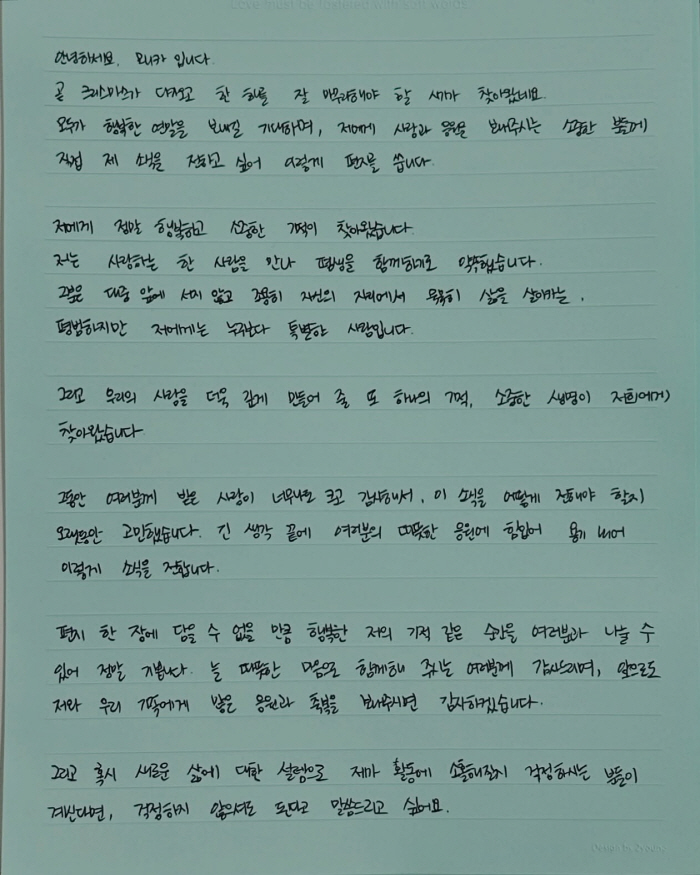 Love must be fostered with soft words.
안녕하세요. 모니카 입니다.
곧 크리스마스가 다가오고 한 해를 잘 마무리해야 할 시기가 찾아왔네요.
모두가 행복한 연말을 보내길 기대하며, 저에게 사랑과 응원을 보내주시는 소중한 분들께
직접 제 소식을 전하고 싶어 이렇게 편지를 씁니다.
저에게 정말 행복하고 소중한 기적이 찾아왔습니다.
저는 사랑하는 한 사람을 만나 평생을 함께하기로 약속했습니다.
그분은 대중 앞에 서지 않고 조용히 자신의 자리에서 묵묵히 삶을 살아가는,
평범하지만 저에게는 누구보다 특별한 사람입니다.
그리고 우리의 사랑을 더욱 깊게 만들어 줄 또 하나의 기적, 소중한 생명이 저희에게
찾아왔습니다.
그동안 여러분께 받은 사랑이 너무나도 크고 감사해서, 이 소식을 어떻게 전해야 할지
오랫동안 고민했습니다. 긴 생각 끝에 여러분의 따뜻한 응원에 힘입어 용기 내어
이렇게 소식을 전합니다.
편지 한 장에 담을 수 없을 만큼 행복한 저의 기적 같은 순간을 여러분과 나눌 수
있어 정말 기쁩니다. 늘 따뜻한 마음으로 함께해 주시는 여러분께 감사드리며, 앞으로도
저와 우리 기적에게 많은 응원과 축복을 보내주시면 감사하겠습니다.
그리고 혹시 새로운 삶에 대한 설렘으로 제가 활동에 소홀해질지 걱정하시는 분들이
계신다면, 걱정하지 않으셔도 된다고 말씀드리고 싶어요.